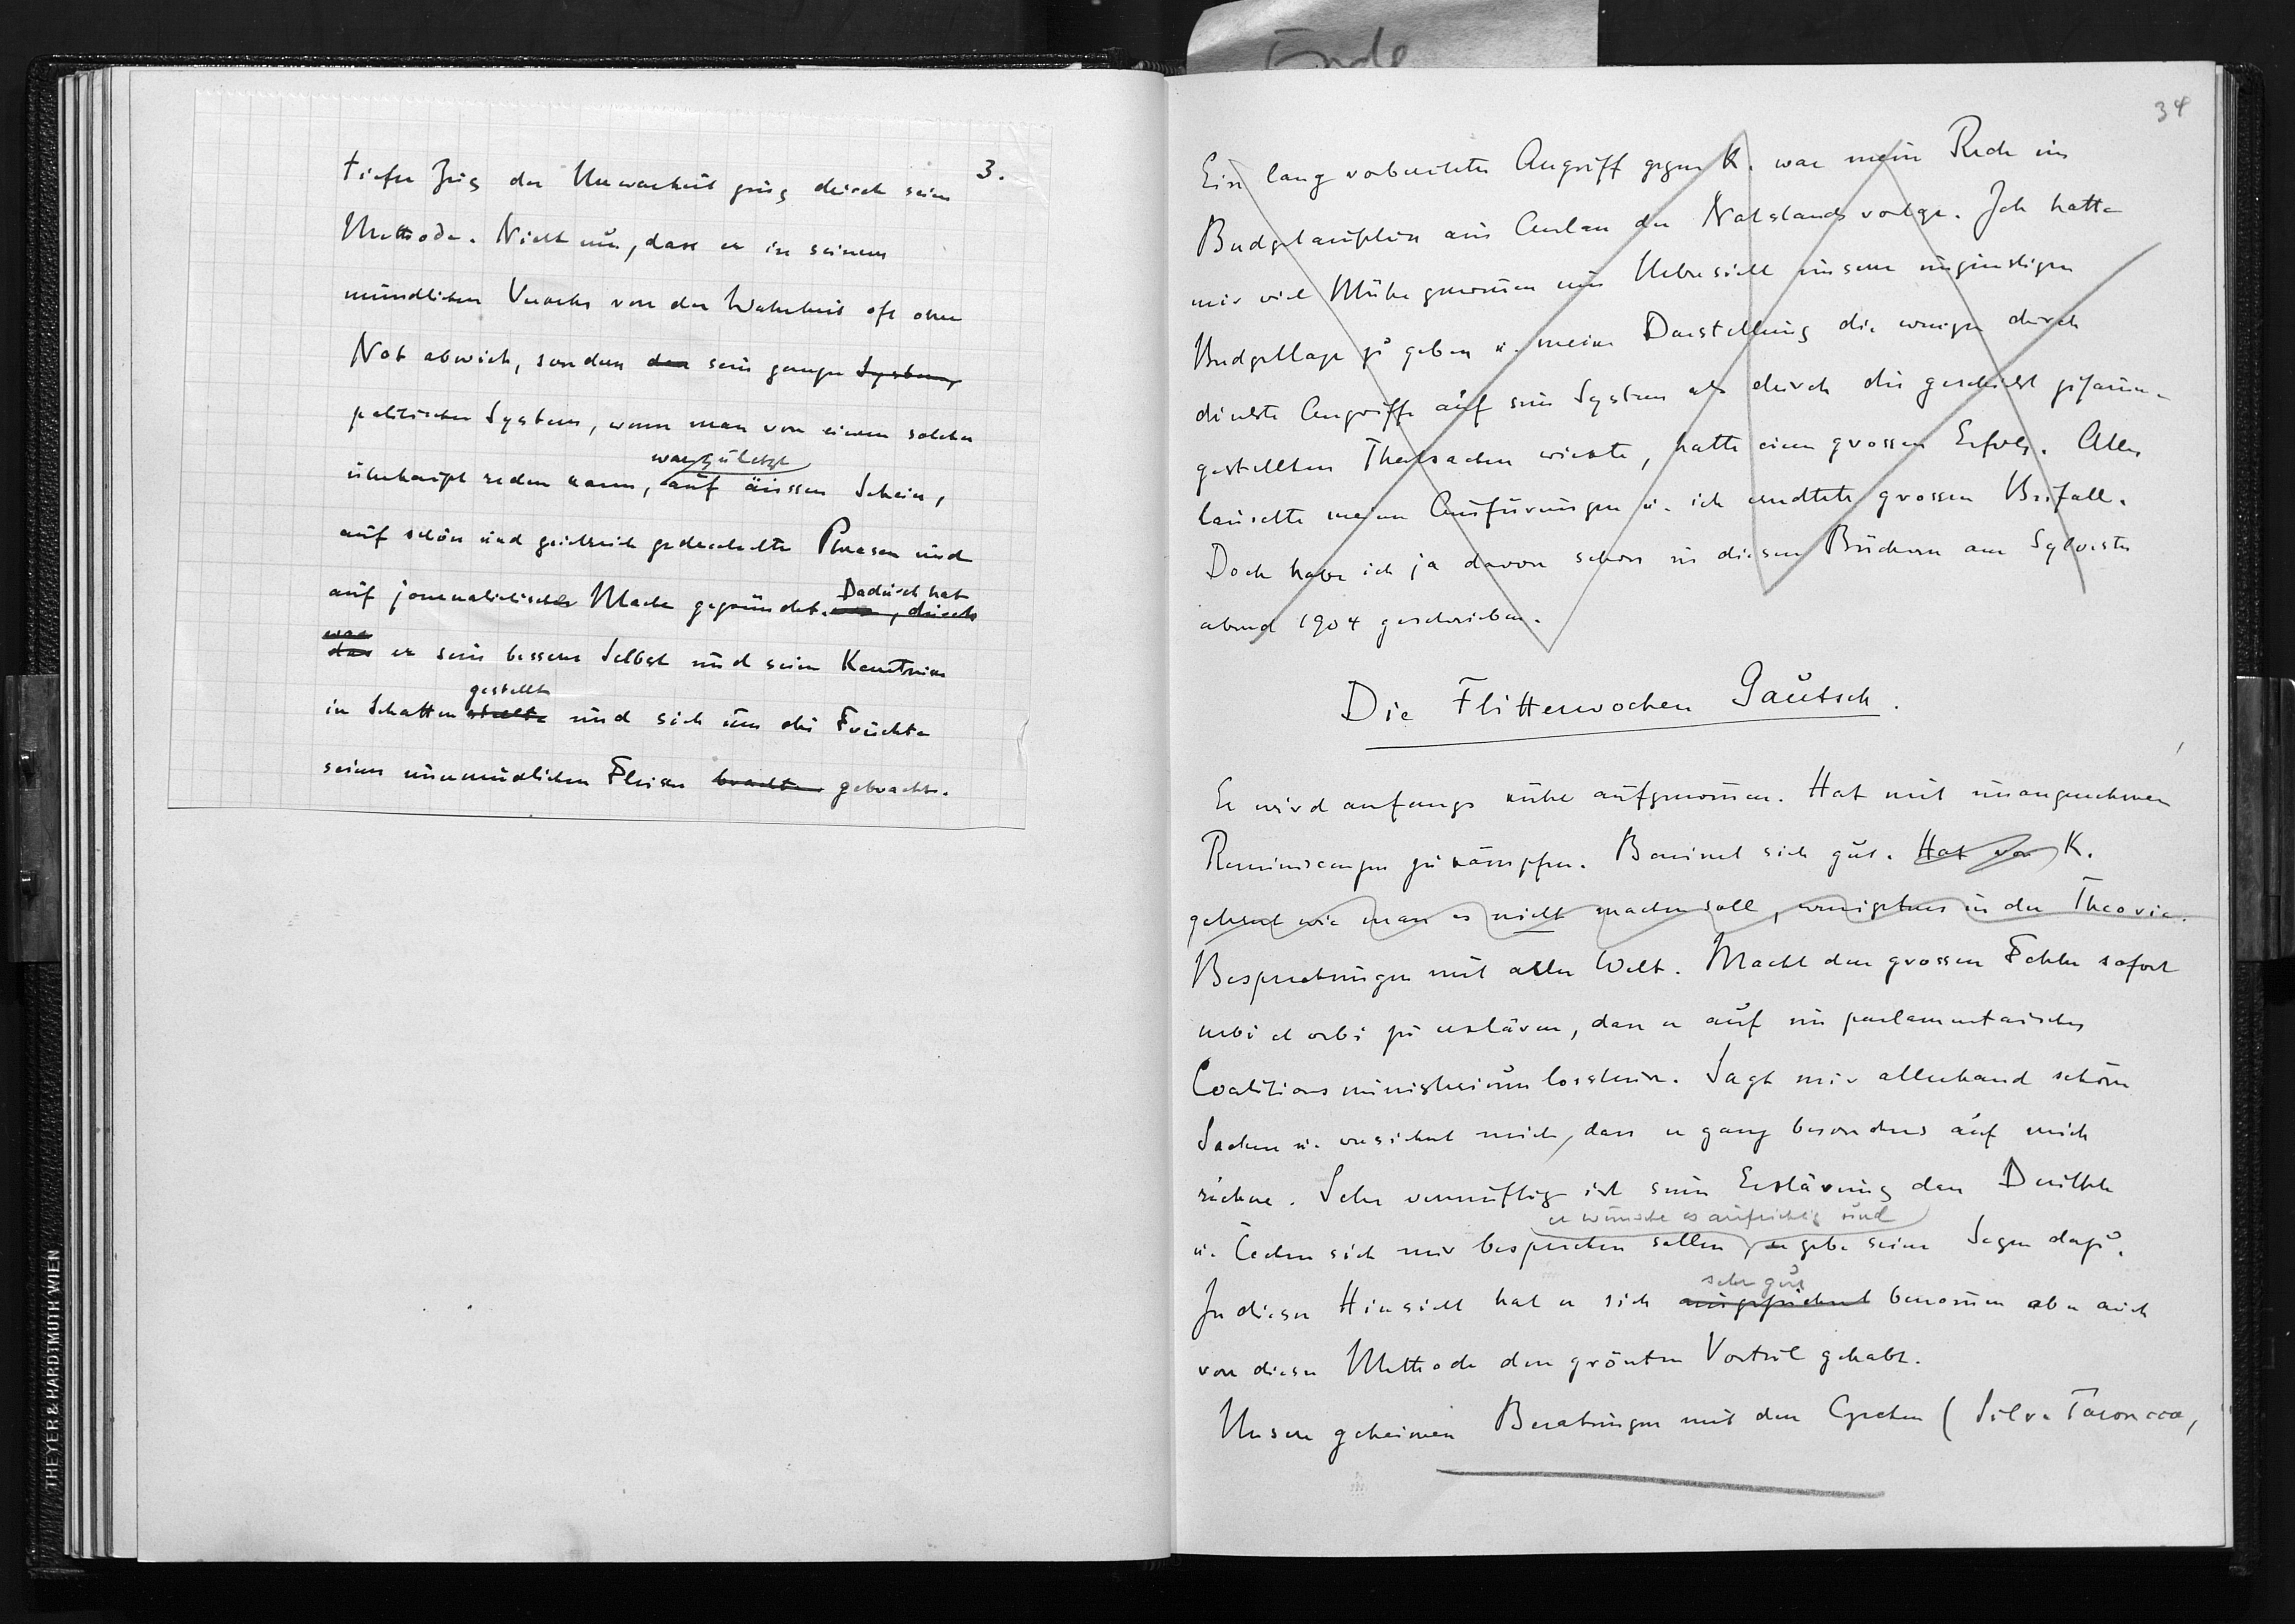 3.
tiefer Zug der Unwarheit ging durch seine
Methode. Nicht nur, dass er in seinem
mündlichen Verkehr von der Wahrheit oft ohne
Not abwich, sondern der sein ganzes System
politisches System, wenn man von einem solchen
war zuletzt
überhaupt reden kann, auf äussern Schein,
auf schön und geistreich gedrechselte Phrasen und
auf journalistischer Mache gegründet. Dadurch hat , durch
was
das er sein besseres Selbst und seine Kenntnisse
gestellt
in Schatten stellte und sich um die Früchte
seines unermüdlichen Fleisses brachte gebracht.
Ende
34
Ein lang vorbereiteter Angriff gegen K. war meine Rede im
Budgetausschuss aus Anlass der Notstandsvorlage. Ich hatte
mir viel Mühe genommen eine Uebersicht unserer ungünstigen
Budgetlage zu geben u. meine Darstellung die weniger durch
direkte Angriffe auf sein System als durch die geschickt zusammen-
gestellten Thatsachen wirkte, hatte einen grossen Erfolg. Alles
lauschte meinen Ausfürungen u. ich erndtete grossen Beifall.
Doch habe ich ja davon schon in diesen Büchern am Sylvester
abend 1904 geschrieben.
Die Flitterwochen Gautsch.
Er wird anfangs kühl aufgenommen. Hat mit unangenehmen
Reminiscenzen zu kämpfen. Benimmt sich gut. Hat von K.
gelernt wie man es nicht machen soll, wenigstens in der Theorie.
Besprechungen mit aller Welt. Macht den grossen Fehler sofort
urbi et orbi zu erklären, dass er auf ein parlamentarisches
Coalitionsministerium lossteure. Sagt mir allerhand schöne
Sachen u. versichert mich, dass er ganz besonders auf mich
rechne. Sehr vernünftig ist seine Erklärung den Deutschen
er wünsche es aufrichtig und
u. Čechen sich nur besprechen sollen, er gebe seinen Segen dazu.
sehr gut
In dieser Hinsicht hat er sich ausgezeichnet benommen aber auch
von dieser Methode den grössten Vorteil gehabt.
Unsere geheimen Beratungen mit den Czechen (Silva Tarouca,
THEYER & HARDTMUTH WIEN